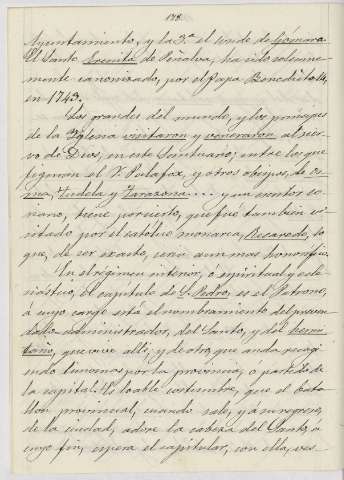 178.
Ayuntamiento, y la 3.ª el Conde de Gómara.
El Santo Ermitá de Peñalva, ha sido solemne-
mente canonizado, por el Papa Benedicto 14,
en 1743.
Los grandes del mundo, y los príncipes
de la Iglesia visitaron y veneraron al sier-
vo de Dios, en este Santuario; entre los que
figuran el V. Palafox, y otros obispos, de Os-
ma, Tudela y Tarazona.... y un escritor so-
riano, tiene por cierto, que fué también vi-
sitado por el católico monarca, Recaredo, lo
que, de ser exacto, sería aun mas honorífico.
En el régimen interior, ó espiritual y ecle-
siástico, el capítulo de S. Pedro, es el Patrono,
á cuyo cargo está el nombramiento del
administrador, del Santo, y del hermi-
taño, que vive allí; y de otro, que anda recogi-
endo limosnas por la provincia, o partido de
la capital. Es loable costumbre, que el bata-
llon provincial, cuando sale, y á su regreso,
de la ciudad, adore la cabeza del Santo, a
cuyo fin, espera el capitular, con ella, ves-